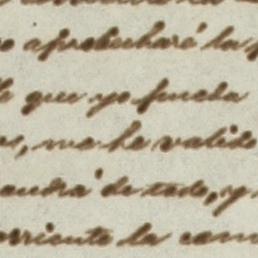 o aprobecharé la
que yo pueda
me ha valido
de todo, y
orriente la